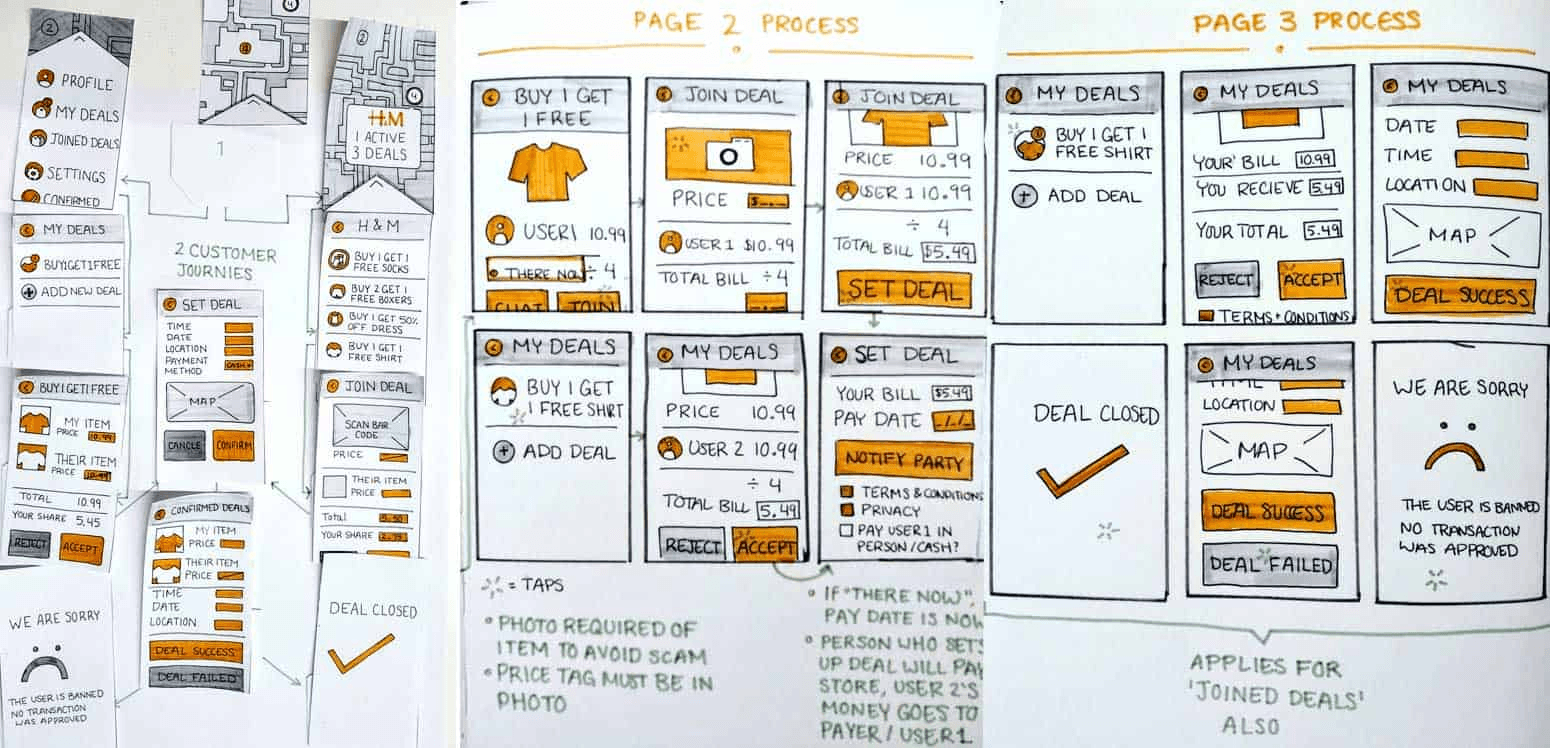 2
PROFILE
MY DEALS
JOINED DEALS
SETTINGS
CONFIRMED
MY DEALS
BUY 1 GET 1 FREE
ADD NEW DEAL
BUY 1 GET 1 FREE
MY ITEM
PRICE 10.99
THEIR ITEM
PRICE 10.99
TOTAL 10.99
YOUR SHARE 5.45
REJECT ACCEPT
WE ARE SORRY
THE USER IS BANNED
NO TRANSACTION
WAS APPROVED
4
1
2 CUSTOMER
JOURNIES
SET DEAL
TIME
DATE
LOCATION
PAYMENT
METHOD CASH
MAP
CANCLE CONFIRM
CONFIRMED DEALS
MY ITEM
PRICE
THEIR ITEM
PRICE
TIME
DATE
LOCATION
DEAL SUCCESS
DEAL FAILED
2
4
H&M
1 ACTIVE
3 DEALS
H & M
BUY 1 GET 1
FREE SOCKS
BUY 2 GET 1
FREE BOXERS
BUY 1 GET 50%
OFF DRESS
BUY 1 GET 1
FREE SHIRT
JOIN DEAL
SCAN BAR
CODE
PRICE
THEIR ITEM
PRICE
Total
YOUR SHARE
DEAL CLOSED
PAGE 2 PROCESS
BUY 1 GET
1 FREE
USER1 10.99
THERE NOW ÷ 4
CHAT JOIN
JOIN DEAL
PRICE $_._
USER 1 $10.99
TOTAL BILL ÷ 4
JOIN DEAL
PRICE 10.99
USER 1 10.99
÷ 4
TOTAL BILL $5.49
SET DEAL
MY DEALS
BUY 1 GET
1 FREE SHIRT
ADD DEAL
MY DEALS
PRICE 10.99
USER 2 10.99
÷ 4
TOTAL BILL 5.49
REJECT ACCEPT
SET DEAL
YOUR BILL $5.49
PAY DATE _/_/_
NOTIFY PARTY
TERMS & CONDITIONS
PRIVACY
PAY USER 1 IN
PERSON/CASH?
= TAPS
• PHOTO REQUIRED OF
ITEM TO AVOID SCAM
• PRICE TAG MUST BE IN
PHOTO
• IF "THERE NOW",
PAY DATE IS NOW
• PERSON WHO SETS
UP DEAL WILL PAY
STORE, USER 2'S
MONEY GOES TO
PAYER / USER 1
PAGE 3 PROCESS
MY DEALS
BUY 1 GET 1
FREE SHIRT
ADD DEAL
MY DEALS
YOUR BILL 10.99
YOU RECIEVE 5.49
YOUR TOTAL 5.49
REJECT ACCEPT
TERMS + CONDITIONS
MY DEALS
DATE
TIME
LOCATION
MAP
DEAL SUCCESS
DEAL CLOSED
MY DEALS
TIME
LOCATION
MAP
DEAL SUCCESS
DEAL FAILED
WE ARE SORRY
THE USER IS BANNED
NO TRANSACTION
WAS APPROVED
APPLIES FOR
'JOINED DEALS'
ALSO